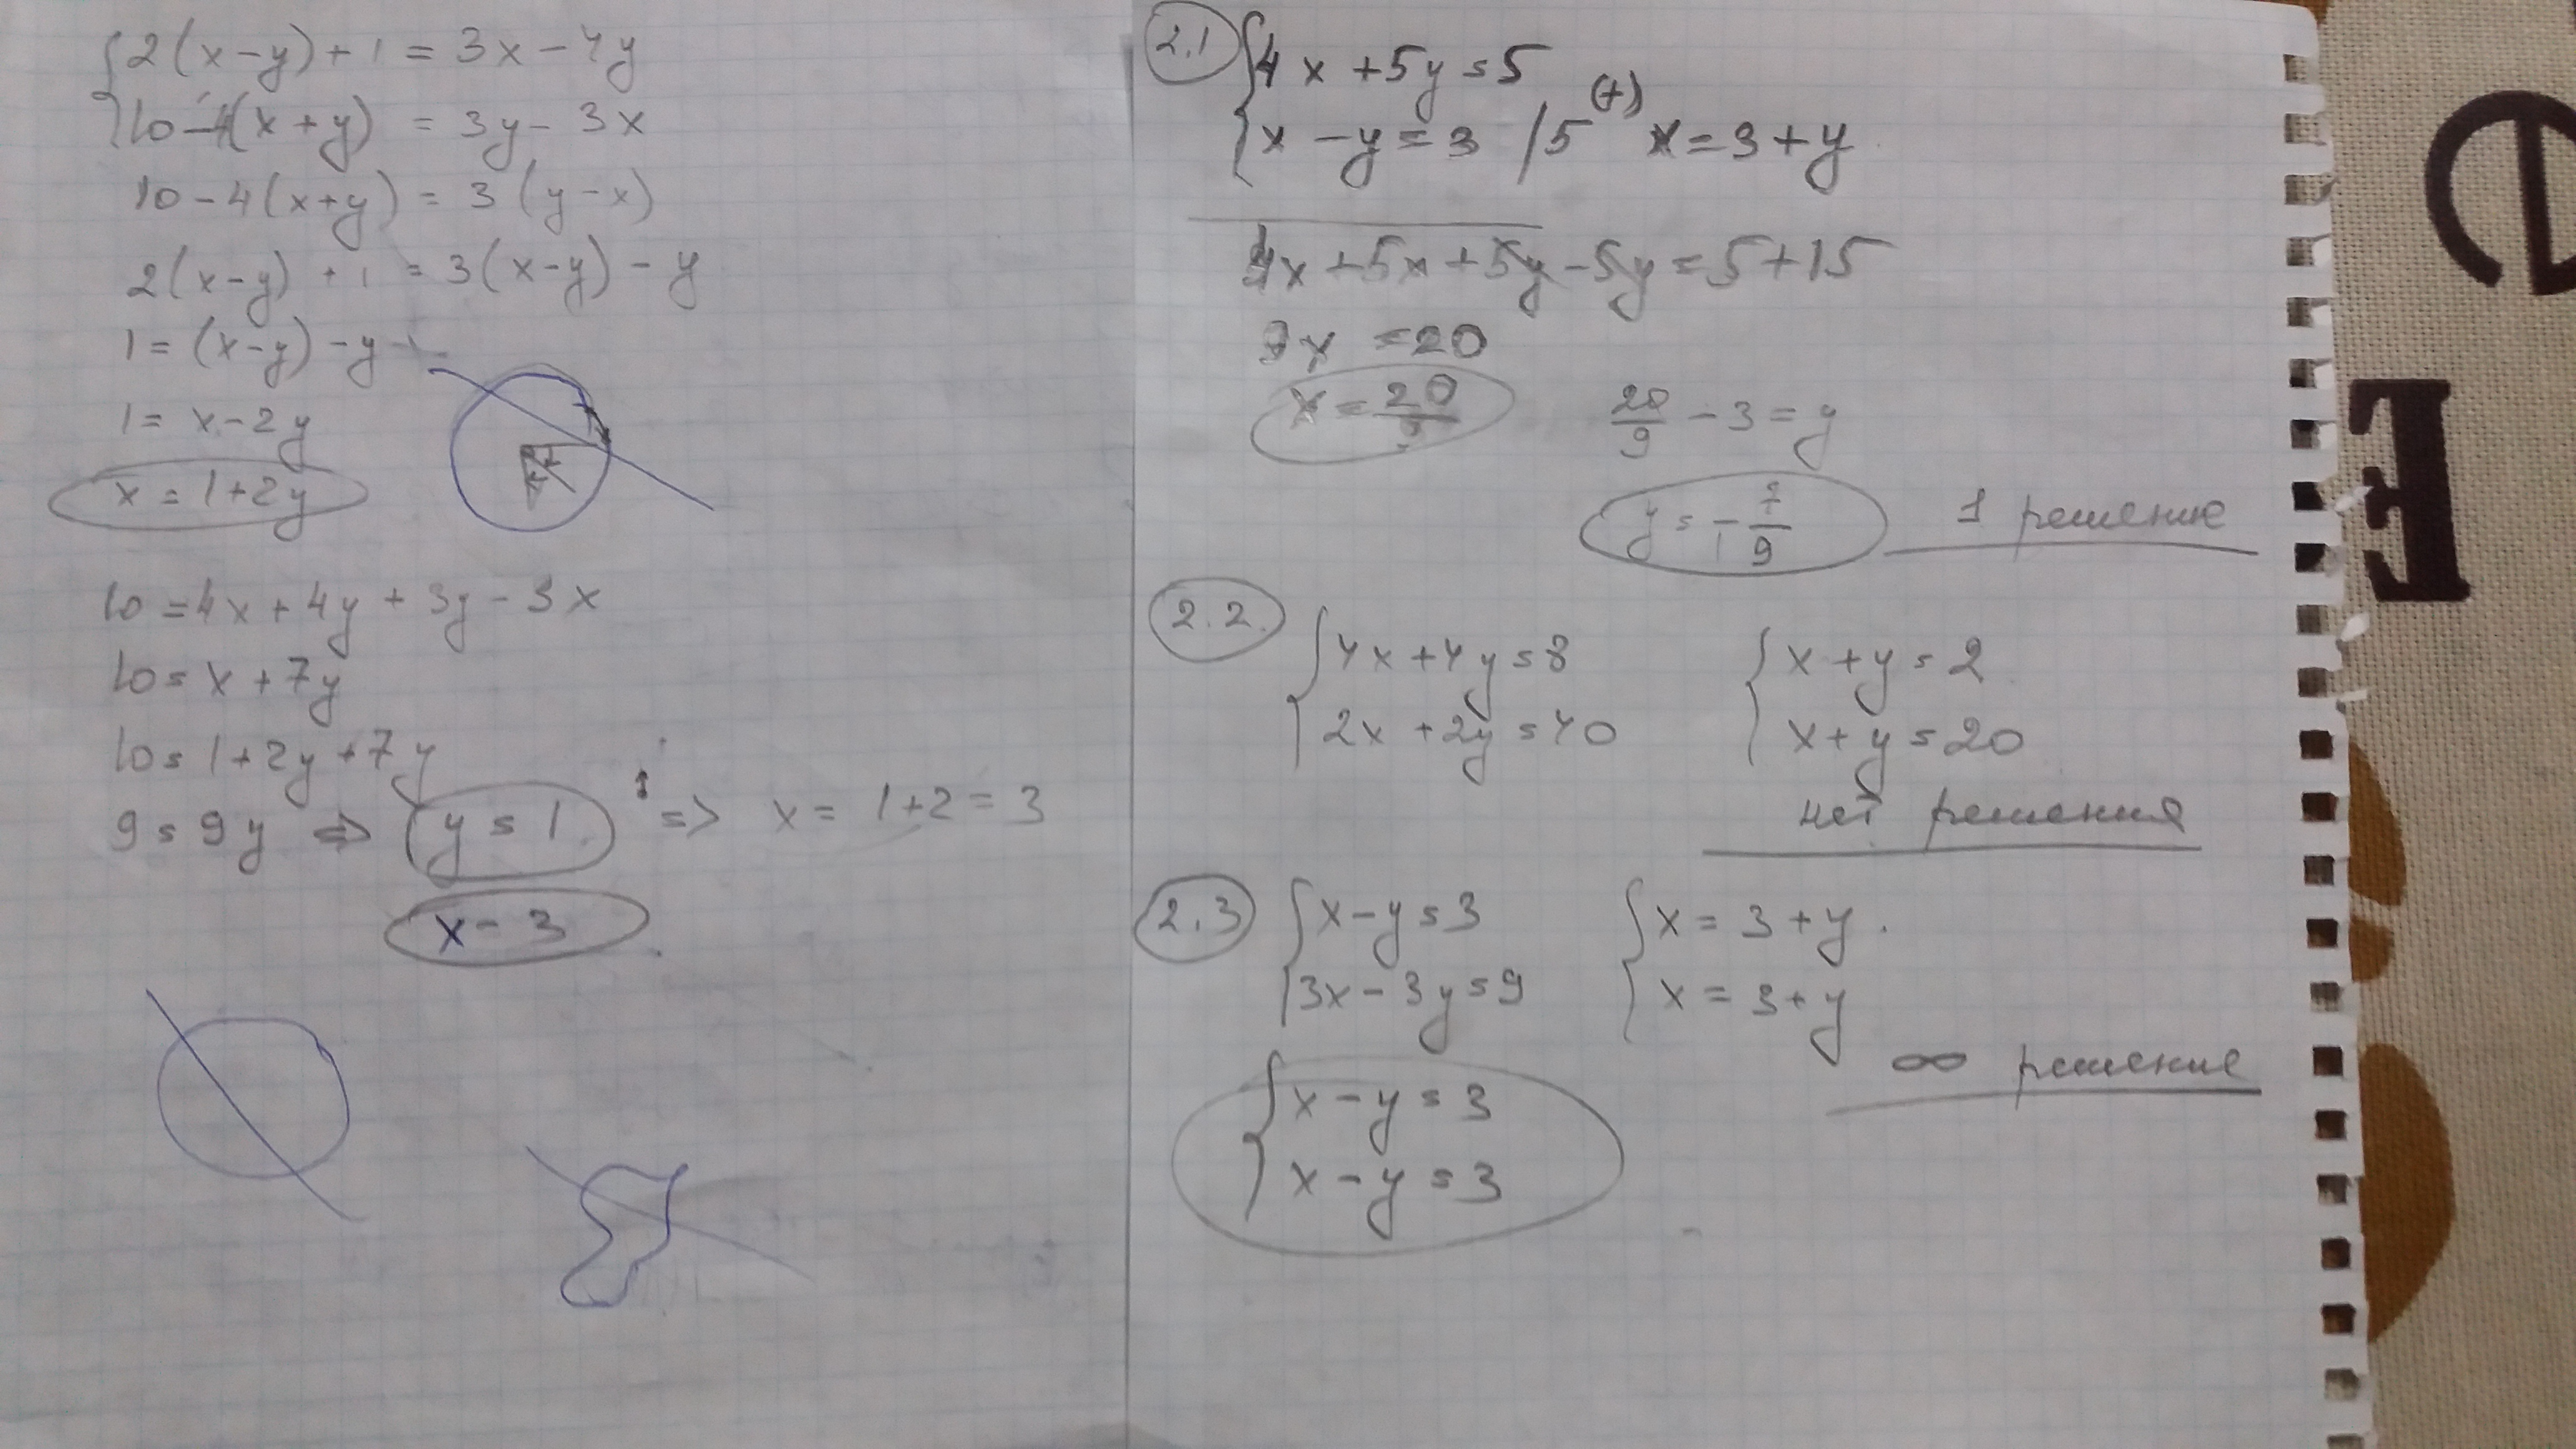 2(x-y)+1 = 3x-4y
10-4(x+y) = 3y-3x
10-4(x+y) = 3(y-x)
2(x-y)+1 = 3(x-y)-y
1=(x-y)-y
1=x-2y
x=1+2y
10=4x+4y+3y-3x
10=x+7y
10=1+2y+7y
9=9y => y=1 => x=1+2=3
x-3
2.1 4x+5y=5
x-y=3 /5 (+) x=3+y
4x+5x+5y-5y=5+15
9x=20
x=20/9 20/9-3=y
y=-7/9 1 решение
2.2. 4x+4y=8 x+y=2
2x+2y=40 x+y=20
нет решения
2.3 x-y=3 x=3+y.
3x-3y=9 x=3+y
∞ решение
x-y=3
x-y=3
E